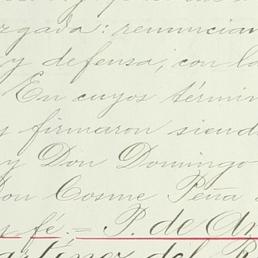 rgada: renuncian
y defensa, con la
En cuyos términ
y firmaron siend
y Don Domingo
on Cosme Peña
fé. = P. de An
del R